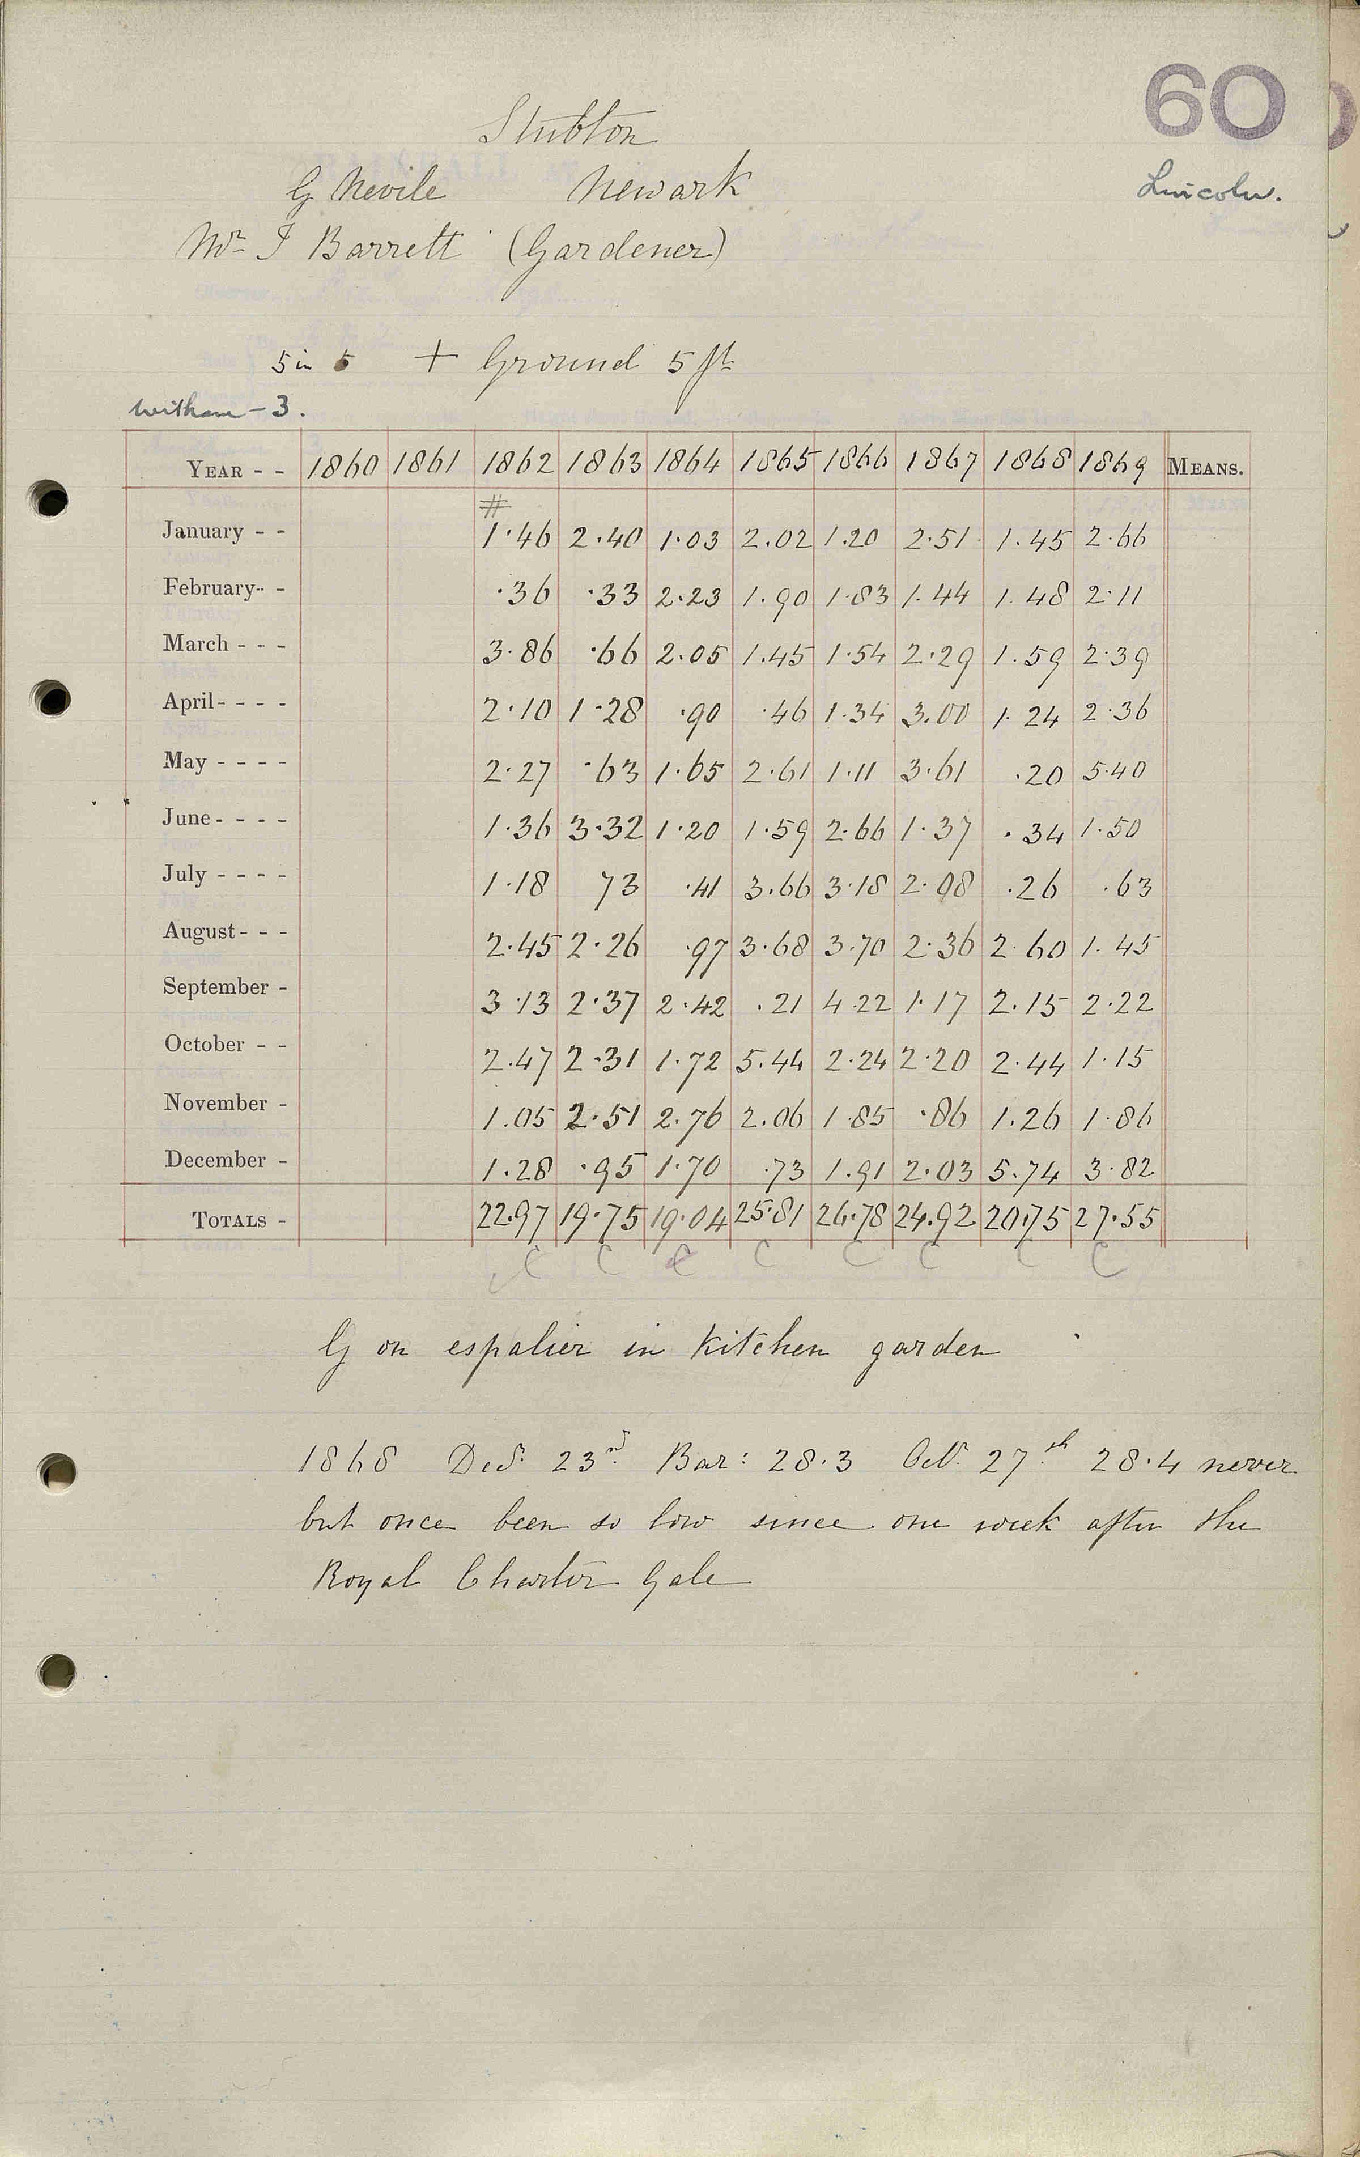 60
Lincoln.
Stubton
G Nevile Newark
Mr J Barrett (Gardener)
5 in 5 + Ground 5 ft
Witham - 3.
YEAR - - 1860 1861 1862 1863 1864 1865 1866 1867 1868 1869 MEANS.
#
January - - 1.46 2.40 1.03 2.02 1.20 2.51 1.45 2.66
February - - .36 .33 2.23 1.90 1.83 1.44 1.48 2.11
March - - - 3.86 .66 2.05 1.45 1.54 2.29 1.59 2.39
April - - - - 2.10 1.28 .90 .46 1.34 3.00 1.24 2.36
May - - - - 2.27 .63 1.65 2.61 1.11 3.61 .20 5.40
June - - - - 1.36 3.32 1.20 1.59 2.66 1.37 .34 1.50
July - - - - 1.18 73 .41 3.66 3.18 2.08 .26 .63
August - - - 2.45 2.26 .97 3.68 3.70 2.36 2.60 1.45
September - 3.13 2.37 2.42 .21 4.22 1.17 2.15 2.22
October - - 2.47 2.31 1.72 5.44 2.24 2.20 2.44 1.15
November - 1.05 2.51 2.76 2.06 1.85 .86 1.26 1.86
December - 1.28 .95 1.70 .73 1.91 2.03 5.74 3.82
TOTALS - 22.97 19.75 19.04 25.81 26.78 24.92 20.75 27.55
C C C C C C C C
G on espalier in Kitchen garden
1868 Decr. 23rd. Bar: 28.3 Oct. 27th 28.4 never
but once been so low since one week after the
Royal Charter Gale